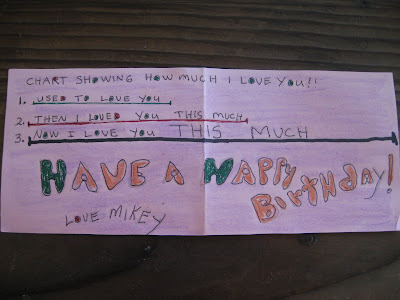 CHART SHOWING HOW MUCH I LOVE YOU!!
1. USED TO LOVE YOU
2. THEN I LOVED YOU THIS MUCH
3. NOW I LOVE YOU THIS MUCH
HAVE A HAPPY
BIRTHDAY!
LOVE MIKEY